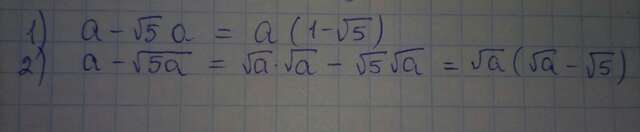 1) a - √5 a = a (1-√5)
2) a - √5a = √a·√a - √5√a = √a(√a - √5)